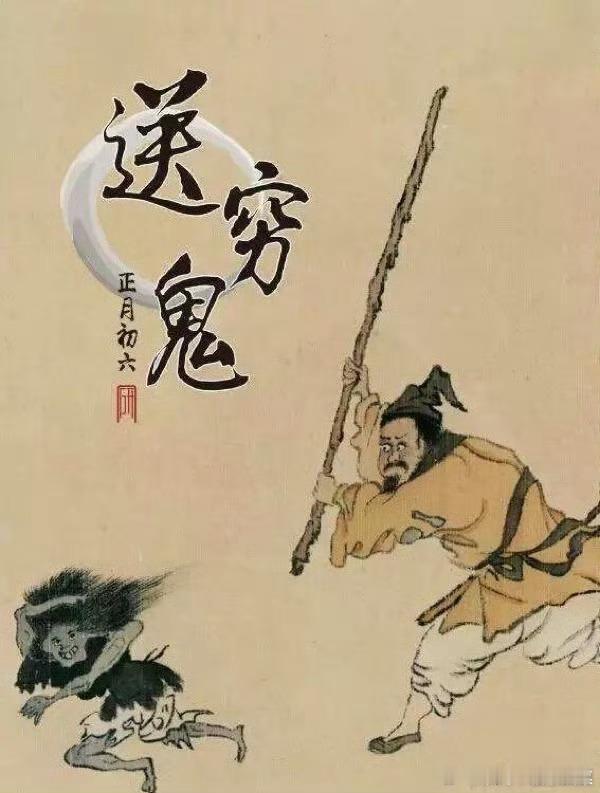 送穷鬼
正月初六